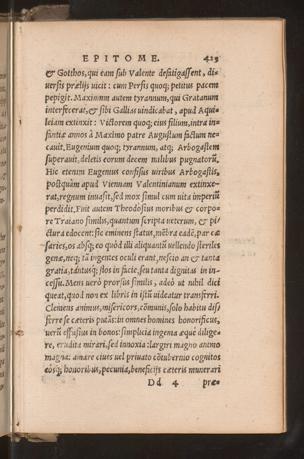 EPITOME. 423
& Gotthos, qui eam sub Valente defatigassent, di-
uersis prælijs uicit: cum Persis quoq; petitus pacem
pepigit. Maximum autem tyrannum, qui Gratianum
interfecerat, & sibi Gallias uindicabat, apud Aqui-
leiam extinxit: Victorem quoq; eius filium, intra in-
fantiæ annos à Maximo patre Augustum factum ne-
cauit, Eugenium quoq; tyrannum, atq; Arbogastem
superauit, deletis eorum decem millibus pugnatorũ.
Hic etenim Eugenius confisus uiribus Arbogastis,
postquàm apud Viennam Valentinianum extinxe-
rat, regnum inuasit, sed mox simul cum uita imperiũ
perdidit. Fuit autem Theodosius moribus & corpo-
re Traiano similis, quantum scripta ueterum, & pi-
ctura edocent: sic eminens status, mẽbra eadẽ, par cæ
saries, os absq; eo quòd illi aliquantũ uellendo steriles
genæ, neq; tã ingentes oculi erant, nescio an & tanta
gratia, tãtusq; flos in facie, seu tanta dignitas in in-
cessu. Mens uerò prorsus similis, adeò ut nihil dici
queat, quod non ex libris in istũ uideatur transferri.
Clemens animus, misericors, cõmunis, solo habitu dif
ferre se cæteris putãs: in omnes homines honorificus,
uerũ effusius in bonos: simplicia ingenia æquè dilige-
re, erudita mirari, sed innoxia: largiri magno animo
magna: amare ciues uel priuato cõtubernio cognitos
eosq; honoribus, pecunia, beneficijs cæteris munerari
Dd 4 præ-